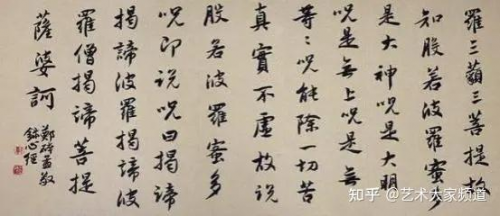 羅三藐三菩提故
知般若波羅蜜多
是大神呪是大明
呪是無上呪是無
等〻呪能除一切苦
真實不虛故說
般若波羅蜜多
呪即说呪曰揭諦
揭諦波羅揭諦波
羅僧揭諦菩提
薩婆訶
鄭碎孟敬
錄心經
知乎 @艺术大家频道